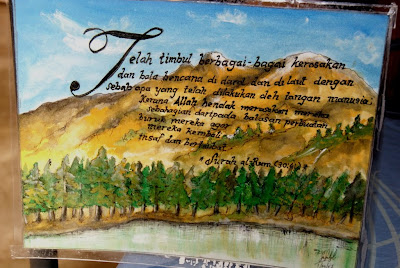 Telah timbul berbagai-bagai kerosakan
dan bala bencana di darat dan di laut dengan
sebab apa yang telah dilakukan oleh tangan manusia.
Kerana Allah hendak merasakan mereka
sebahagian daripada balasan perbuatan
buruk mereka agar
mereka kembali
insaf dan bertaubat
Surah al-Rum (30:41)